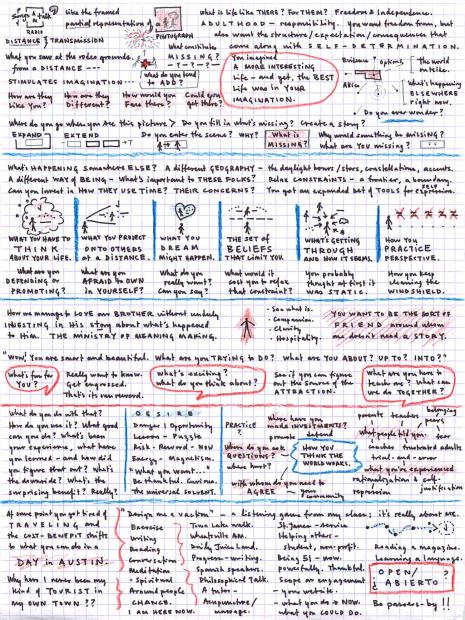 Songs & talk
RADIO
DISTANCE TRANSMISSION
like the framed
partial representation of a
PHOTOGRAPH
What is life like THERE? For THEM? Freedom & Independence.
ADULTHOOD - responsibility. You want freedom from, but
also want the structure/expectation/consequences that
come along with SELF-DETERMINATION.
What you saw at the rodeo grounds.
from a DISTANCE
STIMULATES IMAGINATION
What constitutes
MISSING?
What do you tend
to ADD?
You imagined
A MORE INTERESTING
Life - and get, the BEST
Life was in YOUR
IMAGINATION.
Evidence
options
Alice
The world
on strike.
What's happening
ELSEWHERE
right now.
Do you ever wonder?
How are they
Like You?
How are they
Different?
How would you
Fare there?
Could you
get there?
Where do you go when you see this picture? Do you fill in what's missing?
EXPAND
EXTEND
Do you enter the scene? WHY?
What is
MISSING?
Why would something be MISSING?
What are YOU missing?
What's HAPPENING Somewhere ELSE? A different GEOGRAPHY - the daylight hours/stars, constellations, accents.
A different WAY of BEING - What's important to THESE FOLKS? Relax CONSTRAINTS - a frontier, a boundary.
Can you invest in How THEY USE TIME? THEIR CONCERNS? You got an expanded set of TOOLS for SELF expression.
WHAT YOU HAVE TO
THINK
ABOUT YOUR LIFE.
WHAT YOU PROJECT
ONTO OTHERS
AT A DISTANCE.
WHAT YOU
DREAM
MIGHT HAPPEN.
THE SET OF
BELIEFS
THAT LIMIT YOU
WHAT'S GETTING
THROUGH
AND HOW IT SEEMS.
HOW YOU
PRACTICE
PERSPECTIVE.
What are you
DEFENDING OR
PROMOTING?
What are you
AFRAID TO OWN
in YOURSELF?
What do you
really want?
Can you say?
What would it
cost you to relax
that constraint?
You probably
thought at first it
was STATIC.
How you keep
cleaning the
WINDSHIELD.
How we manage to LOVE our BROTHER without unduly
INVESTING in His story about what's happened
to Him. THE MINISTRY OF MEANING MAKING.
See what is.
Compassion.
Clarity
Hospitality.
YOU WANT TO BE THE SORT OF
FRIEND around whom
one doesn't need a STORY.
"Wow! You are smart and beautiful. What are you TRYING to DO? What are YOU ABOUT? UP TO? INTO?"
What's fun for
YOU?
Really want to know.
Get engrossed.
That's its own reward.
What's exciting?
What do you think about?
See if you can figure
out the source of the
ATTRACTION.
What are you here to
teach me? What can
we do TOGETHER?
What do you do with that?
How do you use it? What good
can you do? What's been
your experience, what have
you learned - and how did
you figure that out? What's
the downside? What's the
surprising benefit? Really?
DESIRE
Danger | Opportunity
Lesson - Puzzle
Risk - Reward - Now
Energy - Magnetism.
"What you want..."
Be thankful. Curious.
The universal solvent.
PRACTICE
?
Where have you
made INVESTMENTS?
promote
defend
Where do you ask
QUESTIONS?
where hurt?
HOW YOU
THINK THE
WORLD WORKS.
with whom do you need to
AGREE
your
community
parents teachers
belonging
peers
What people tell you
fear
teachers frustrated adults
trial - and error
What you've experienced
rationalization & self-
justification
repression
At some point you got tired of
TRAVELING and
the COST-BENEFIT shifts
to what you can do in a
DAY in AUSTIN.
Why have I never been my
kind of TOURIST in
my own TOWN??
"Design me a vacation" - a listening game from my class; it's really about ME.
Exercise
Writing
Reading
Conversation
Meditation
- Spiritual
Around people
CHANGE.
I AM HERE NOW.
Town Lake walk.
Wheatsville AM.
Progress - writing.
Spanish speakers.
Philosophical Talk.
A tutor -
Acupuncture/
massage.
St. James - service
Helping others -
student, non-profit.
Being 51 - now.
powerfully. Thankful.
Scope an engagement
- your website.
- what you do NOW.
what you COULD DO.
Reading a magazine.
Learning a language.
OPEN/
¿ ABIERTO ?
Be passers-by!!